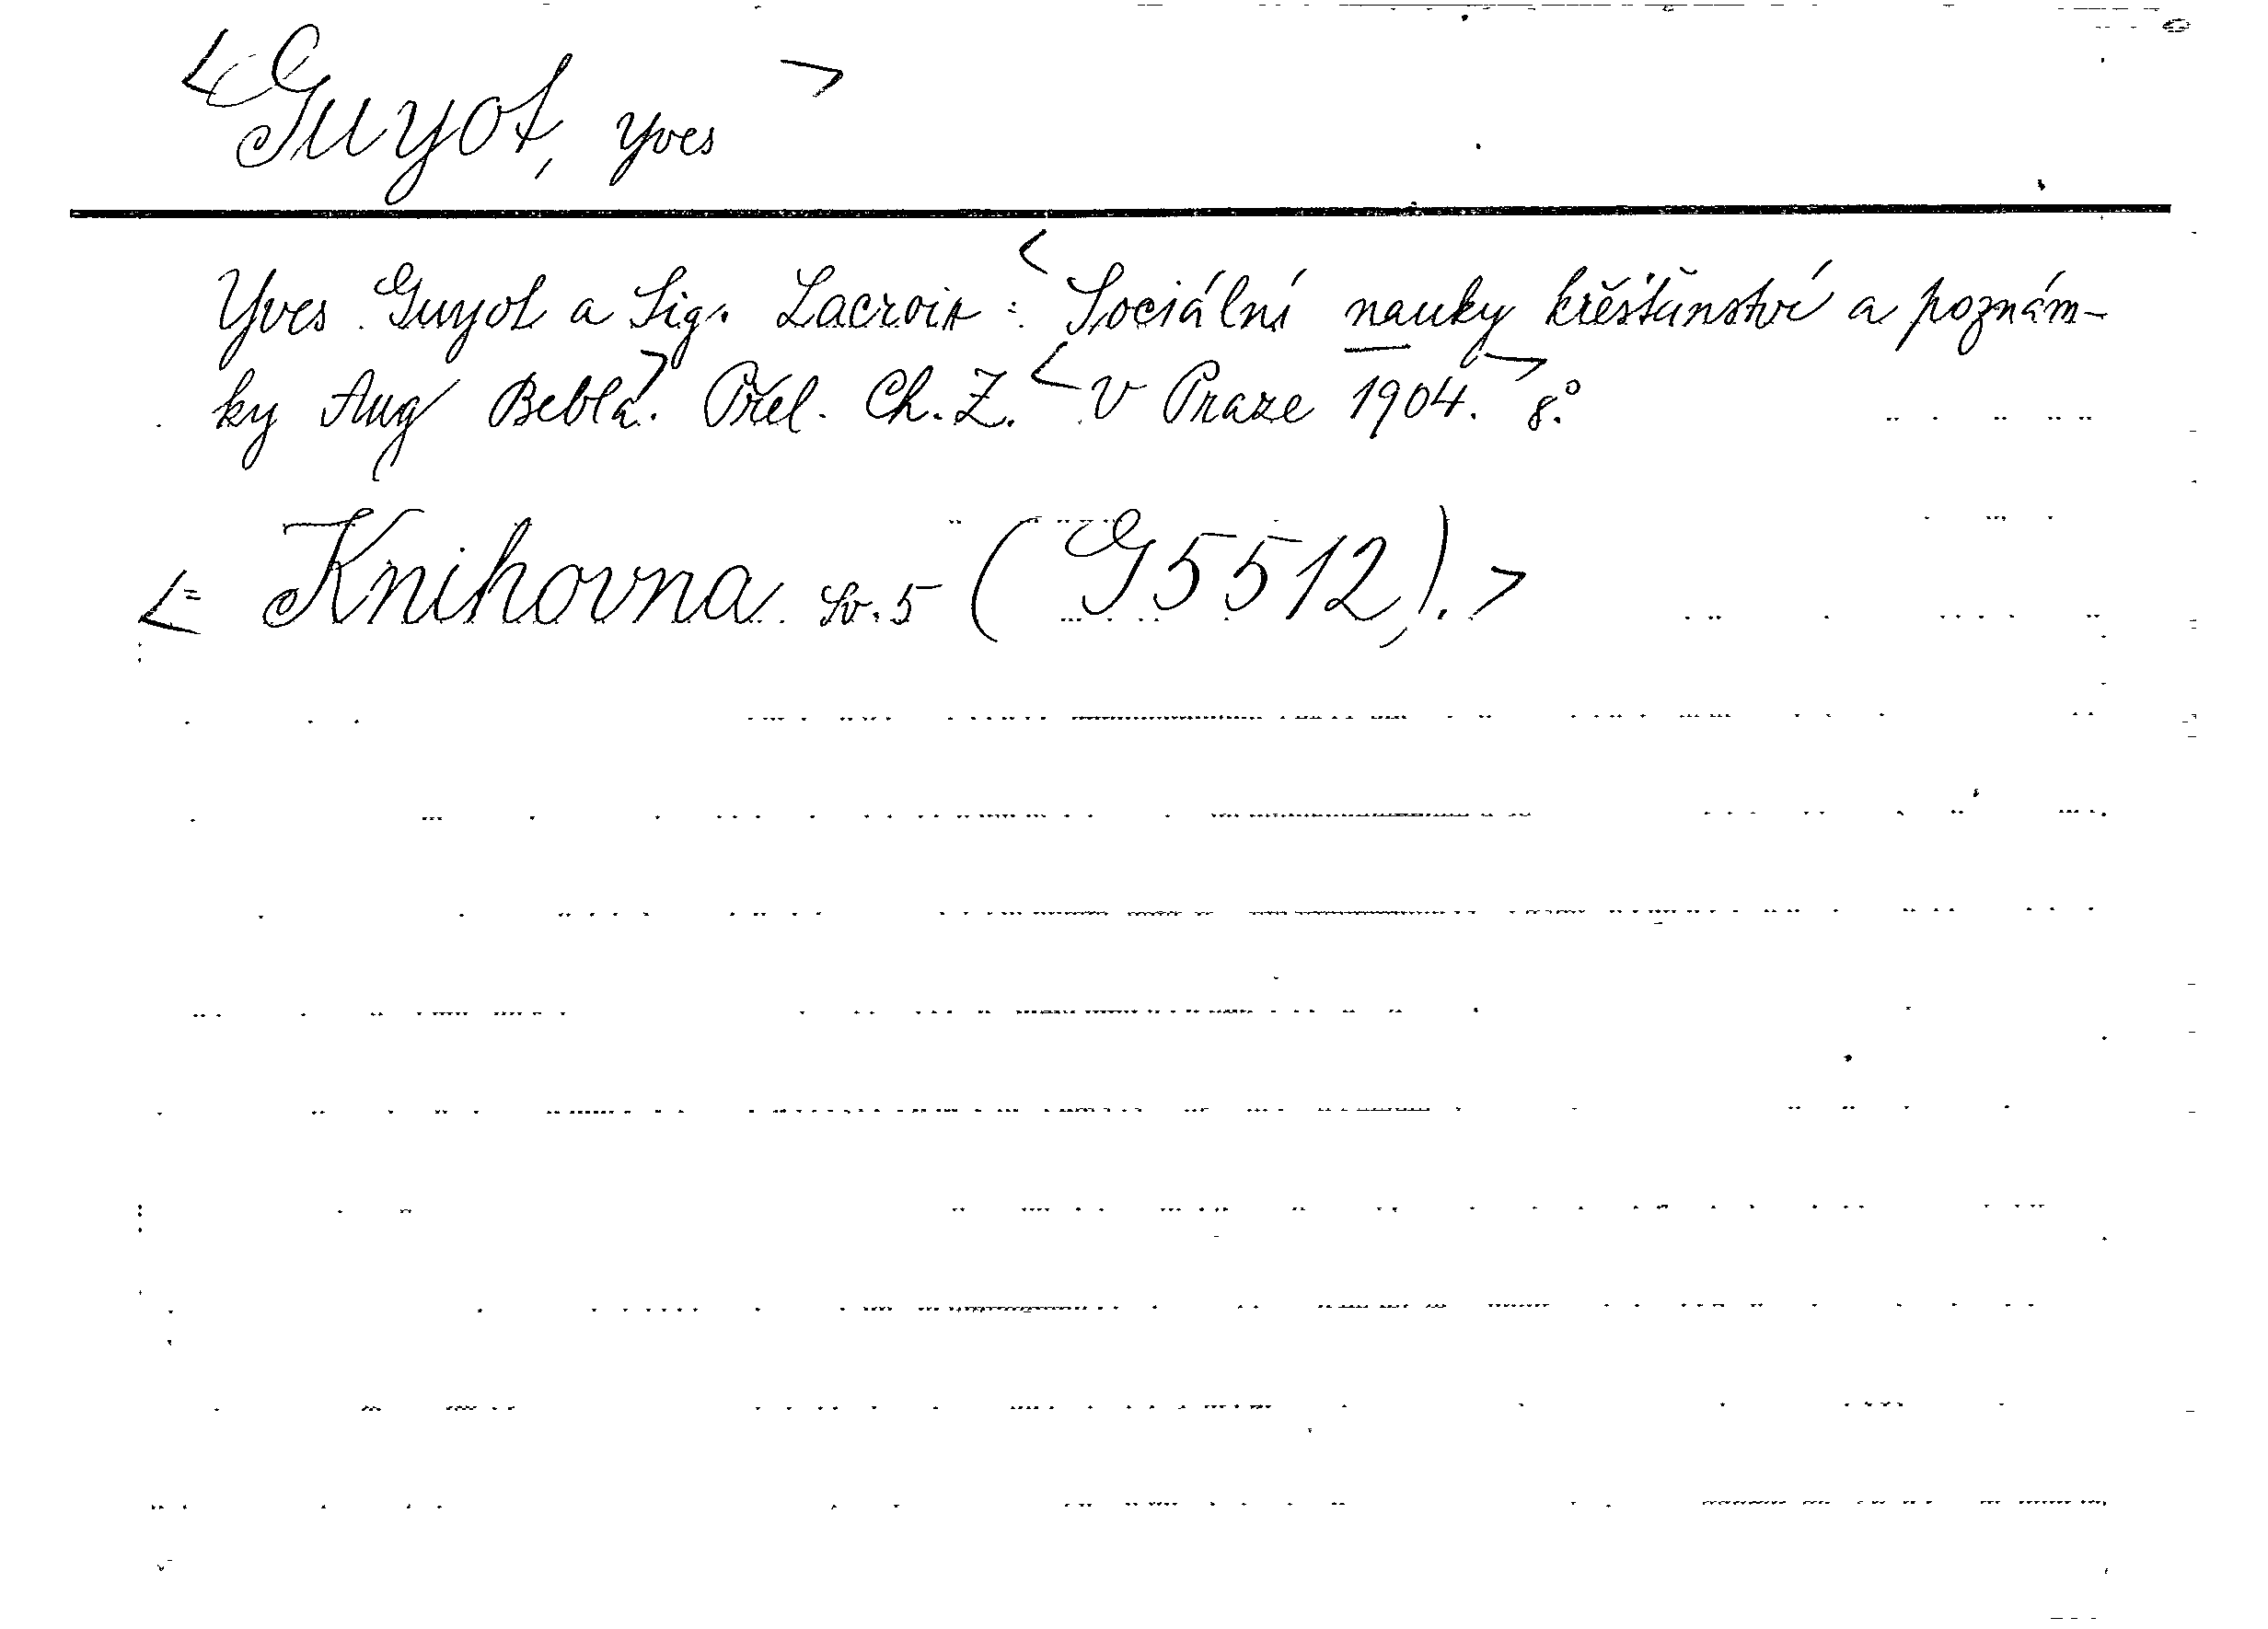 <Guyot, Yves>
Yves Guyot a Sig. Lacroix : <Sociální nauky křesťanství a poznám-
ky Aug Bebla>. Přel. Ch. Z. <V Praze 1904.> 8°.
<= Knihovna sv. 5 (G 5512,).>